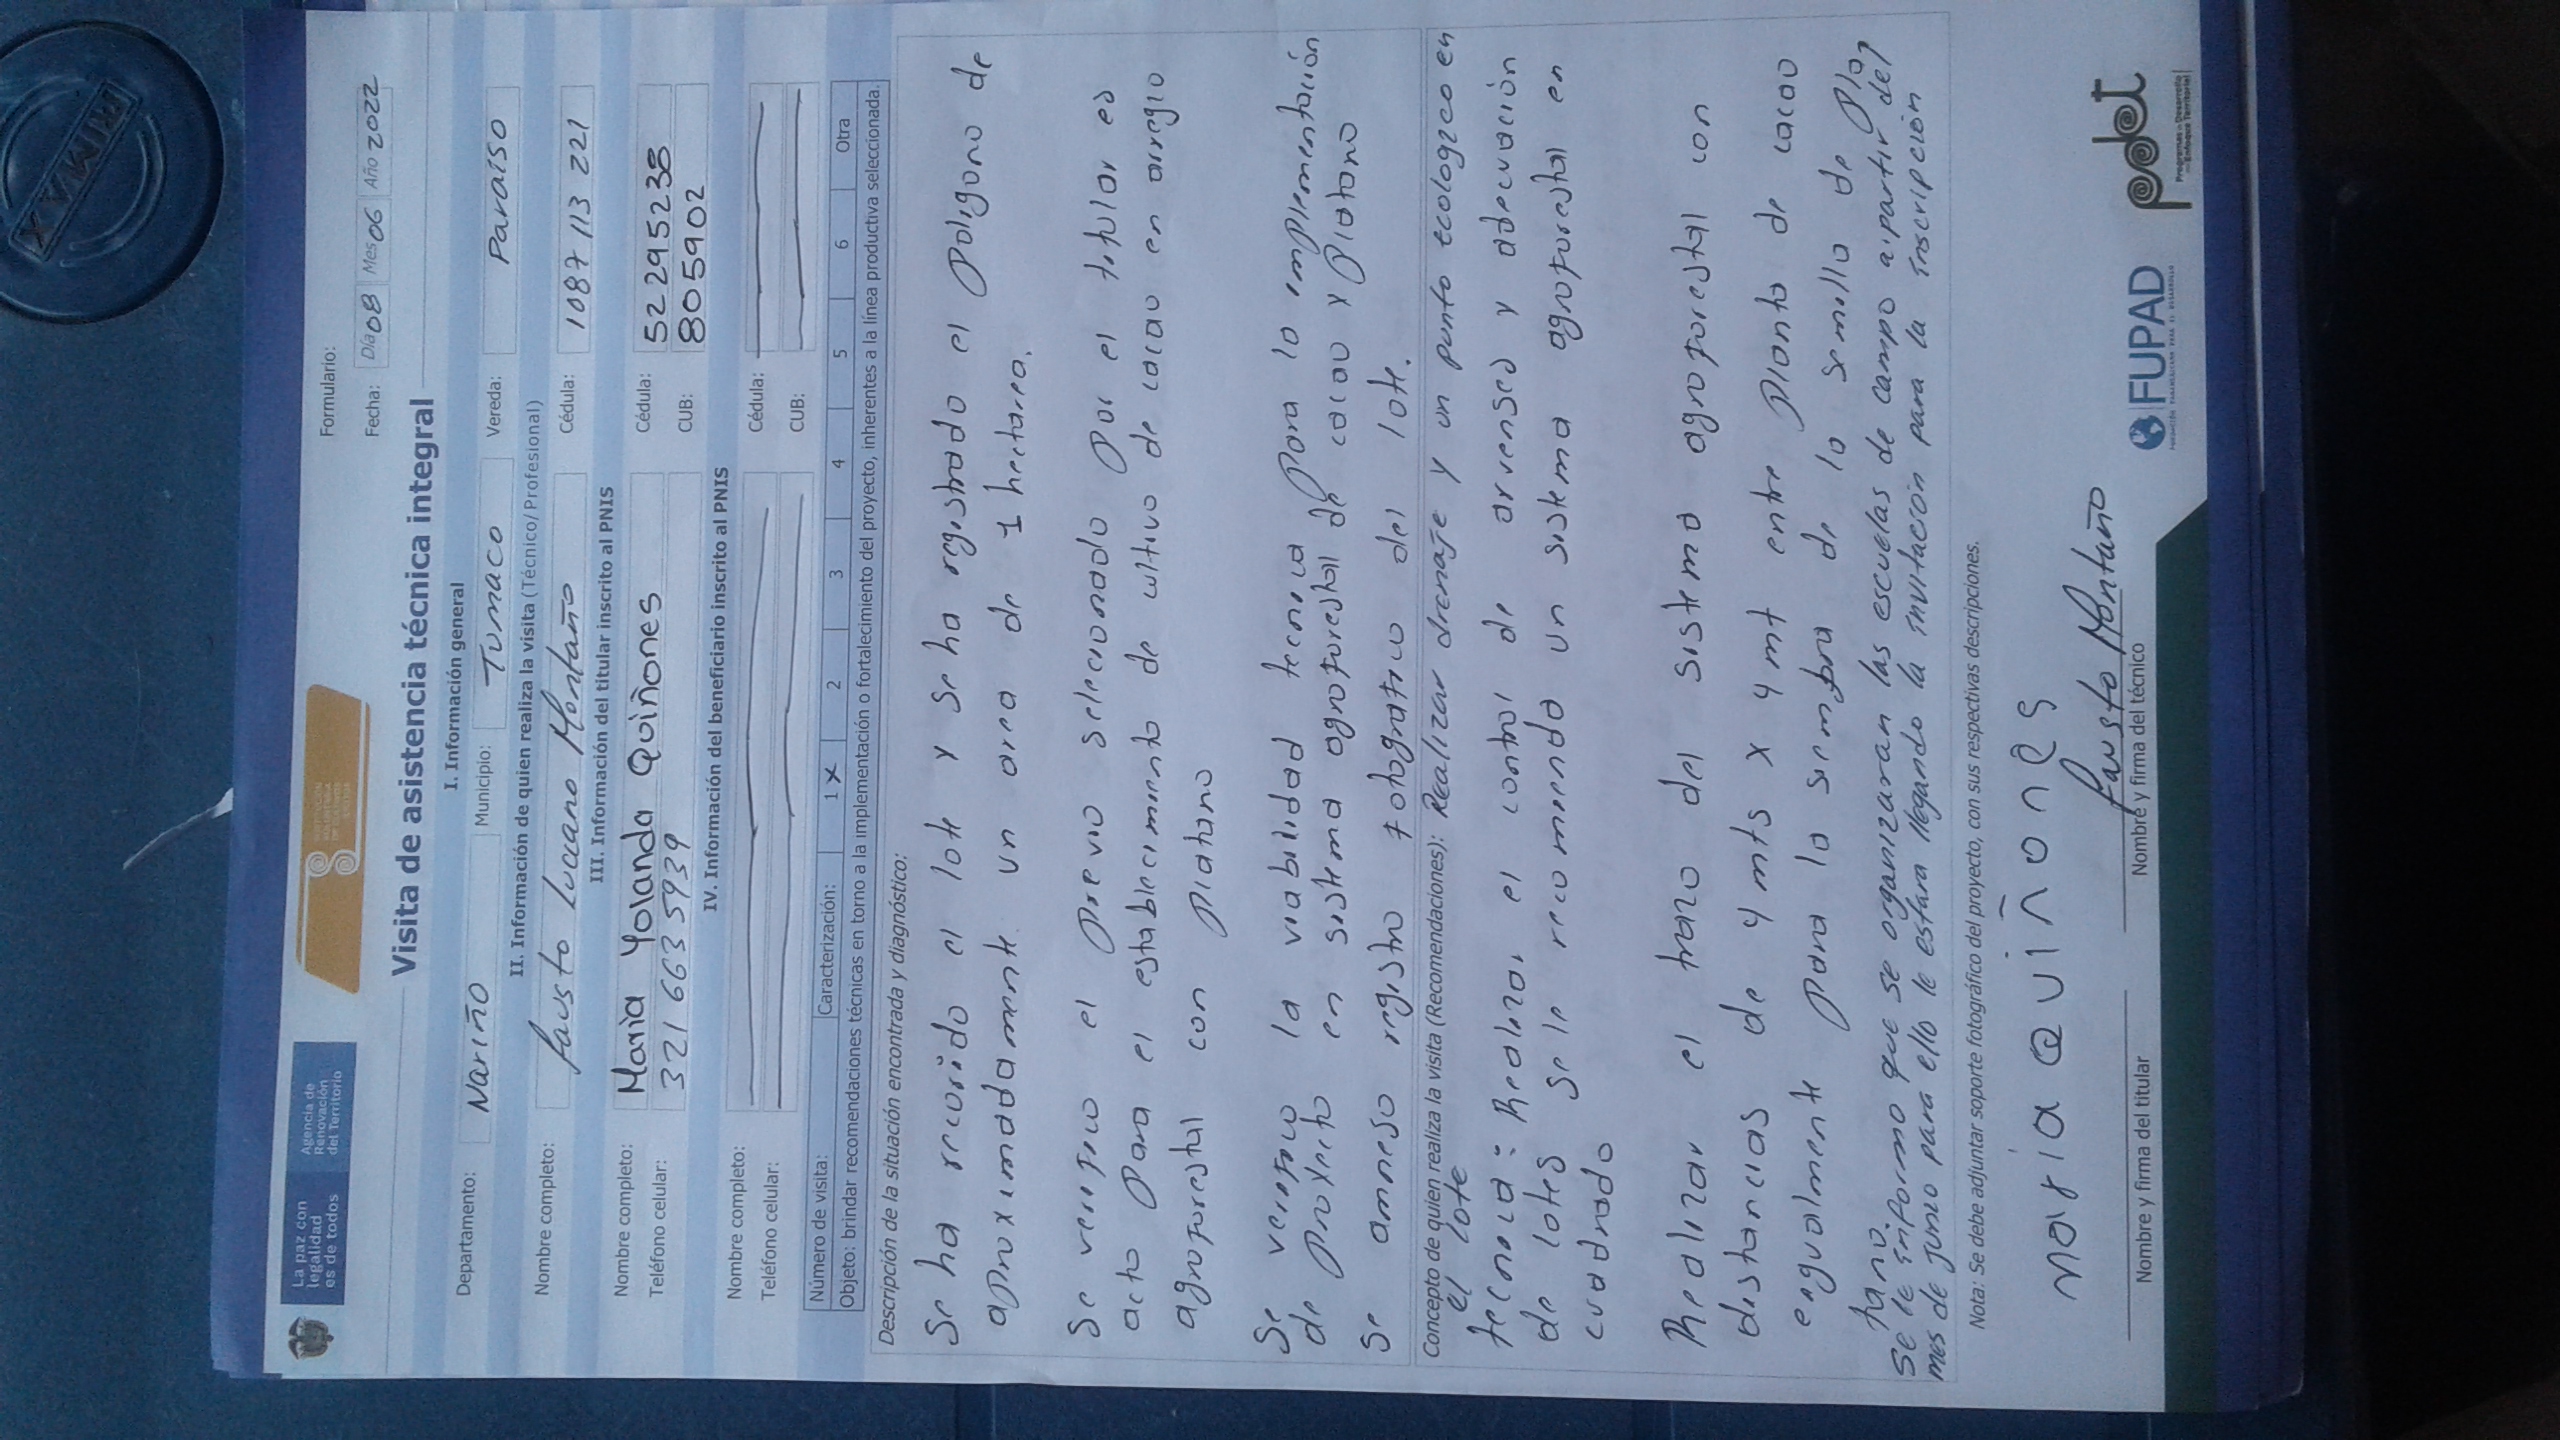 La paz con
legalidad
es de todos
Agencia de
Renovación
del Territorio
Formulario:
Fecha: Día 08 Mes 06 Año 2022
Visita de asistencia técnica integral
I. Información general
Departamento: Nariño Municipio: Tumaco Vereda: Paraíso
II. Información de quien realiza la visita (Técnico/Profesional)
Nombre completo: Fausto Lucano Montaño Cédula: 1087 113 221
III. Información del titular inscrito al PNIS
Nombre completo: Maria Yolanda Quiñones Cédula: 52295238
Teléfono celular: 321 663 5939 CUB: 805902
IV. Información del beneficiario inscrito al PNIS
Nombre completo: Cédula:
Teléfono celular: CUB:
Número de visita: Caracterización: 1 X 2 3 4 5 6 Otra
Objeto: brindar recomendaciones técnicas en torno a la implementación o fortalecimiento del proyecto, inherentes a la línea productiva seleccionada.
Descripción de la situación encontrada y diagnóstico:
Se ha recorido el lote y se ha registrado el Poligono de
aproximadamente un area de 1 hectarea.
Se verifico el previo seleccionado por el titular es
acto para el establecimiento de cultivo de cacao en arreglo
agroforestal con platano
Se verifico la viabilidad tecnica para la implementación
de proyecto en sistema agroforestal de cacao y platano
Se anneso registro fotografico del lote.
Concepto de quien realiza la visita (Recomendaciones): Realizar drenaje y un punto ecologico en
el lote
tecnica: Realizar el control de arvenses y adecuación
de lotes se le recomienda un sistema agroforestal en
cuadrado
Realizar el trazo del sistema agroforestal con
distancias de 4 mts x 4 mt entre planta de cacao
engualmente para la siembra de la semilla de pla
tano.
Se le informo que se organizaran las escuelas de campo a partir del
mes de junio para ello le estara llegando la invitacion para la inscripcion
Nota: Se debe adjuntar soporte fotográfico del proyecto, con sus respectivas descripciones.
maria quiñones
Fausto Montaño
Nombre y firma del titular
Nombre y firma del técnico
FUPAD
pdet
Programas de Desarrollo
con Enfoque Territorial
RIMAX